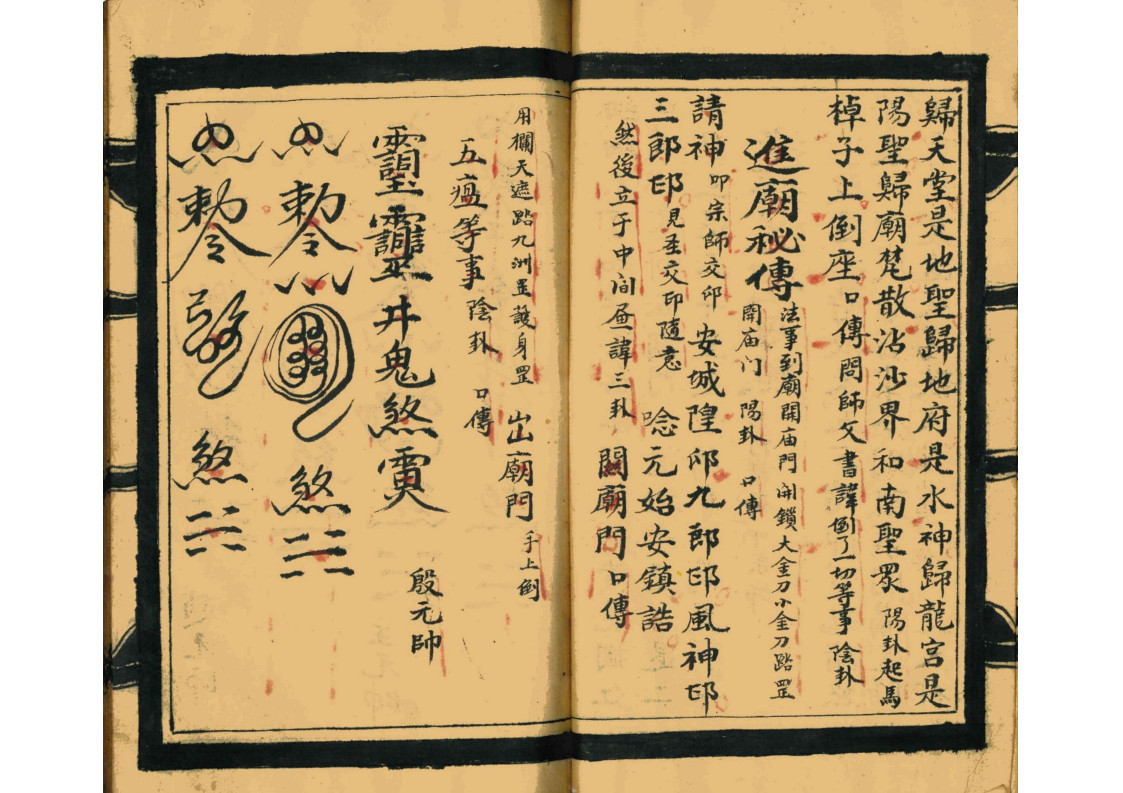 歸天堂是地聖歸地府是水神歸龍宮是
陽聖歸廟梵散沾沙界和南聖眾 陽卦起馬
棹子上倒座 口傳問師父書諱倒了一切等事 陰卦
進廟秘傳 法事到廟開庙門 開鎖大金刀小金刀踏罡
開庙门 陽卦 口傳
請神 叩宗師交卬 安城隍卬九郎卬風神卬
三郎卬 見圣交印隨意 唸元始安鎮誥
然後立于中间 諱三卦 關廟門口傳
用欄天遮路九洲罡護身罡 出廟門 手上倒
五瘟等事 陰卦 口傳
井鬼煞
殷元帥
敕令 煞
敕令 煞